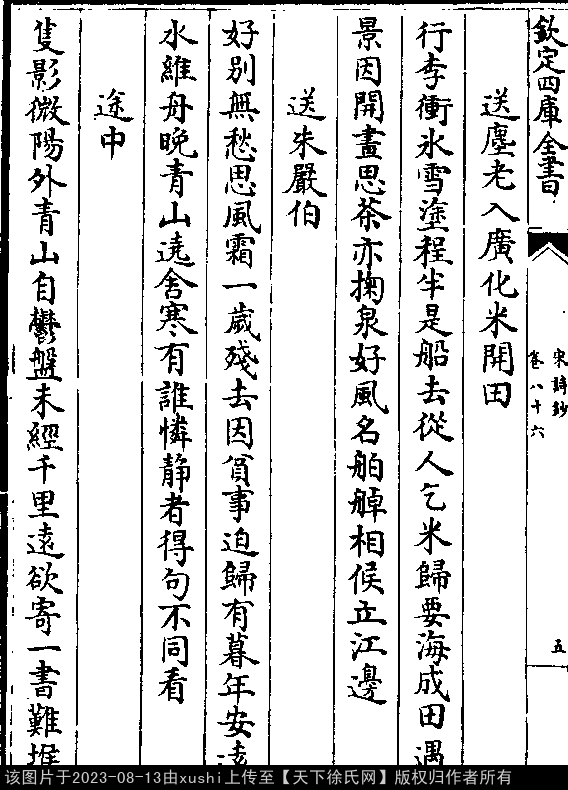 欽定四庫全書
宋詩鈔
卷八十六
五
送塵老入廣化米開田
行李衝氷雪塗程半是船去從人乞米歸要海成田遇
景因開畫思茶亦掬泉好風名舶䑲相候立江邊
送朱嚴伯
好别無愁思風霜一歲殘去因貧事迫歸有暮年安遠
水維舟晚青山遶舍寒有誰憐静者得句不同看
途中
隻影微陽外青山自鬱盤未經千里遠欲寄一書難堠
该图片于2023-08-13由xushi上传至【天下徐氏网】版权归作者所有